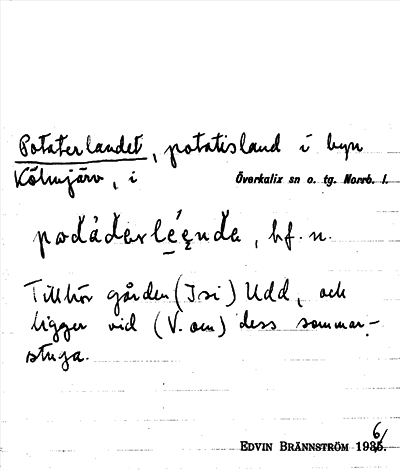 Potaterlandet, potatisland i byn
Kölmjärv, i Överkalix sn o. tg. Norrb. l.
pađáđerlḙ́ęnde, bf. n.
Tillhör gården (Isi) Udd, och
ligger vid (V. om) dess sommar-
stuga.
EDVIN BRÄNNSTRÖM 1936.